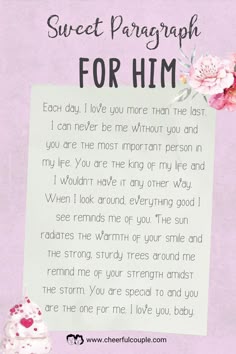 Sweet Paragraph
FOR HIM
Each day, I love you more than the last.
I can never be me without you and
you are the most important person in
my life. You are the king of my life and
I wouldn't have it any other way.
When I look around, everything good I
see reminds me of you. "The sun
radiates the warmth of your smile and
the strong, sturdy trees around me
remind me of your strength amidst
the storm. You are special to and you
are the one for me. I love you, baby.
www.cheerfulcouple.com